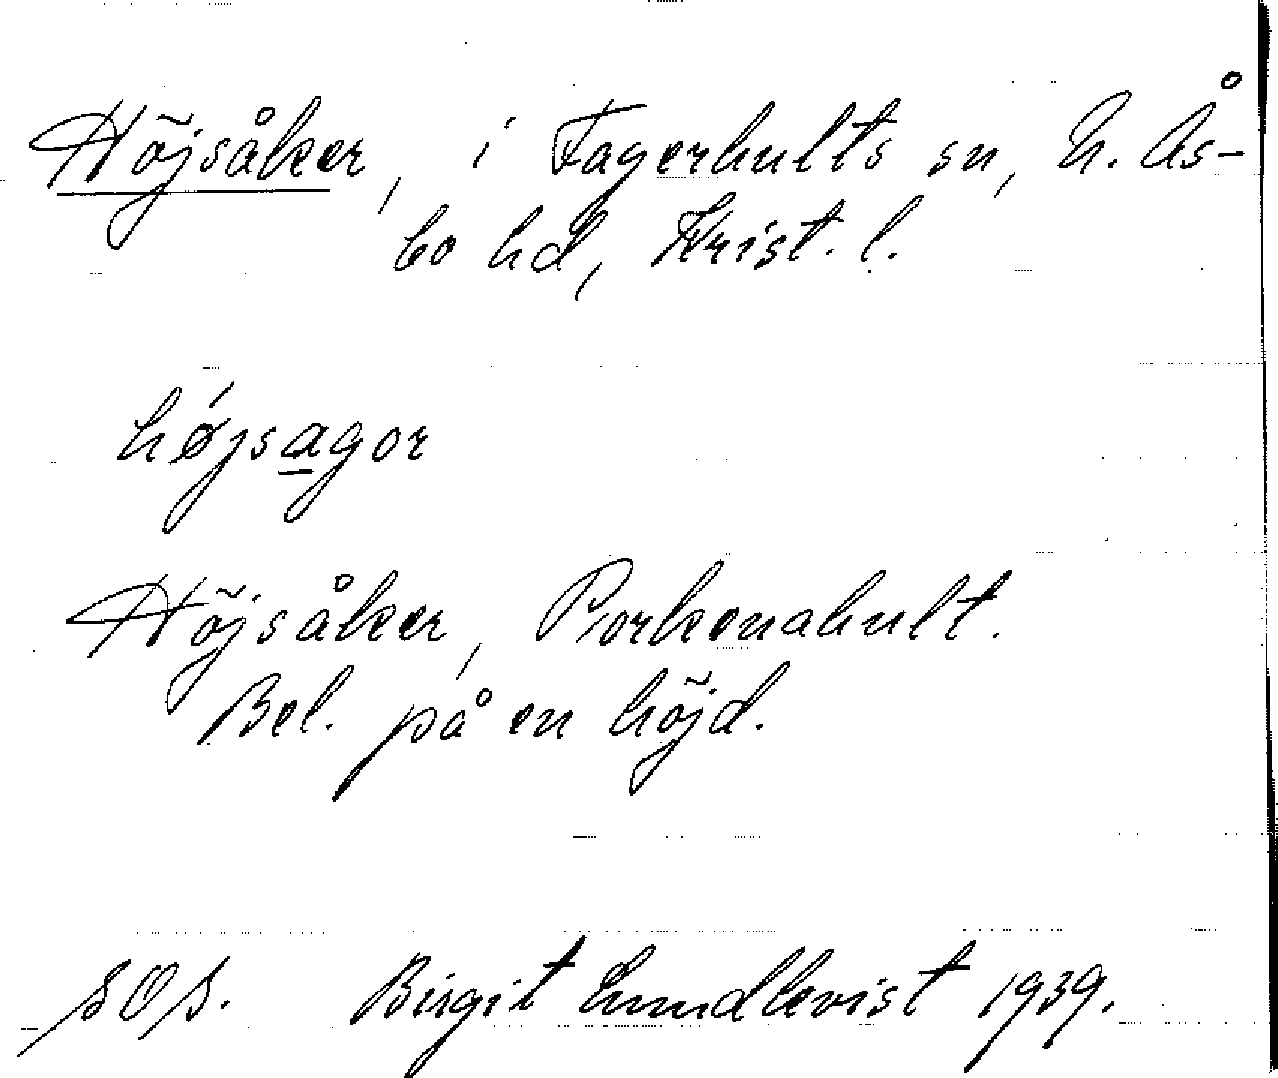 Höjsåker, i Fagerhults sn, N. Ås-
bo hd, Krist. l.
hǿjsagor
Höjsåker, Porkenahult.
Bel. på en höjd.
SOS. Birgit Lundkvist 1939.